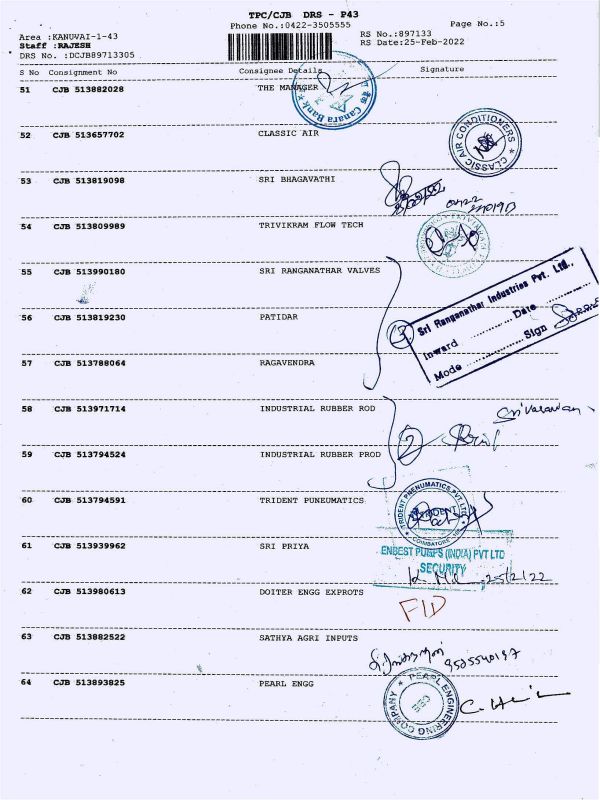 TPC/CJB DRS - P43
Phone No.:0422-3505555 Page No.:5
Area :KANUVAI-1-43 RS No.:897133
Staff :RAJESH RS Date:25-Feb-2022
DRS No. :DCJB89713305
S No Consignment No Consignee Details Signature
51 CJB 513882028 THE MANAGER
Canara Bank
52 CJB 513657702 CLASSIC AIR
CLASSIC AIR CONDITIONERS
53 CJB 513819098 SRI BHAGAVATHI
54 CJB 513809989 TRIVIKRAM FLOW TECH
55 CJB 513990180 SRI RANGANATHAR VALVES
Sri Ranganathar Industries Pvt. Ltd.,
Inward Date
Mode Sign
3
56 CJB 513819230 PATIDAR
57 CJB 513788064 RAGAVENDRA
58 CJB 513971714 INDUSTRIAL RUBBER ROD
2
59 CJB 513794524 INDUSTRIAL RUBBER PROD
60 CJB 513794591 TRIDENT PUNEUMATICS
TRIDENT PNEUMATICS PVT. LTD.
TRIDENT
COIMBATORE
61 CJB 513939962 SRI PRIYA
ENBEST PUMPS (INDIA) PVT LTD
SECURITY
25/2/22
62 CJB 513980613 DOITER ENGG EXPROTS
FID
63 CJB 513882522 SATHYA AGRI INPUTS
64 CJB 513893825 PEARL ENGG
PEARL ENGINEERING COMPANY